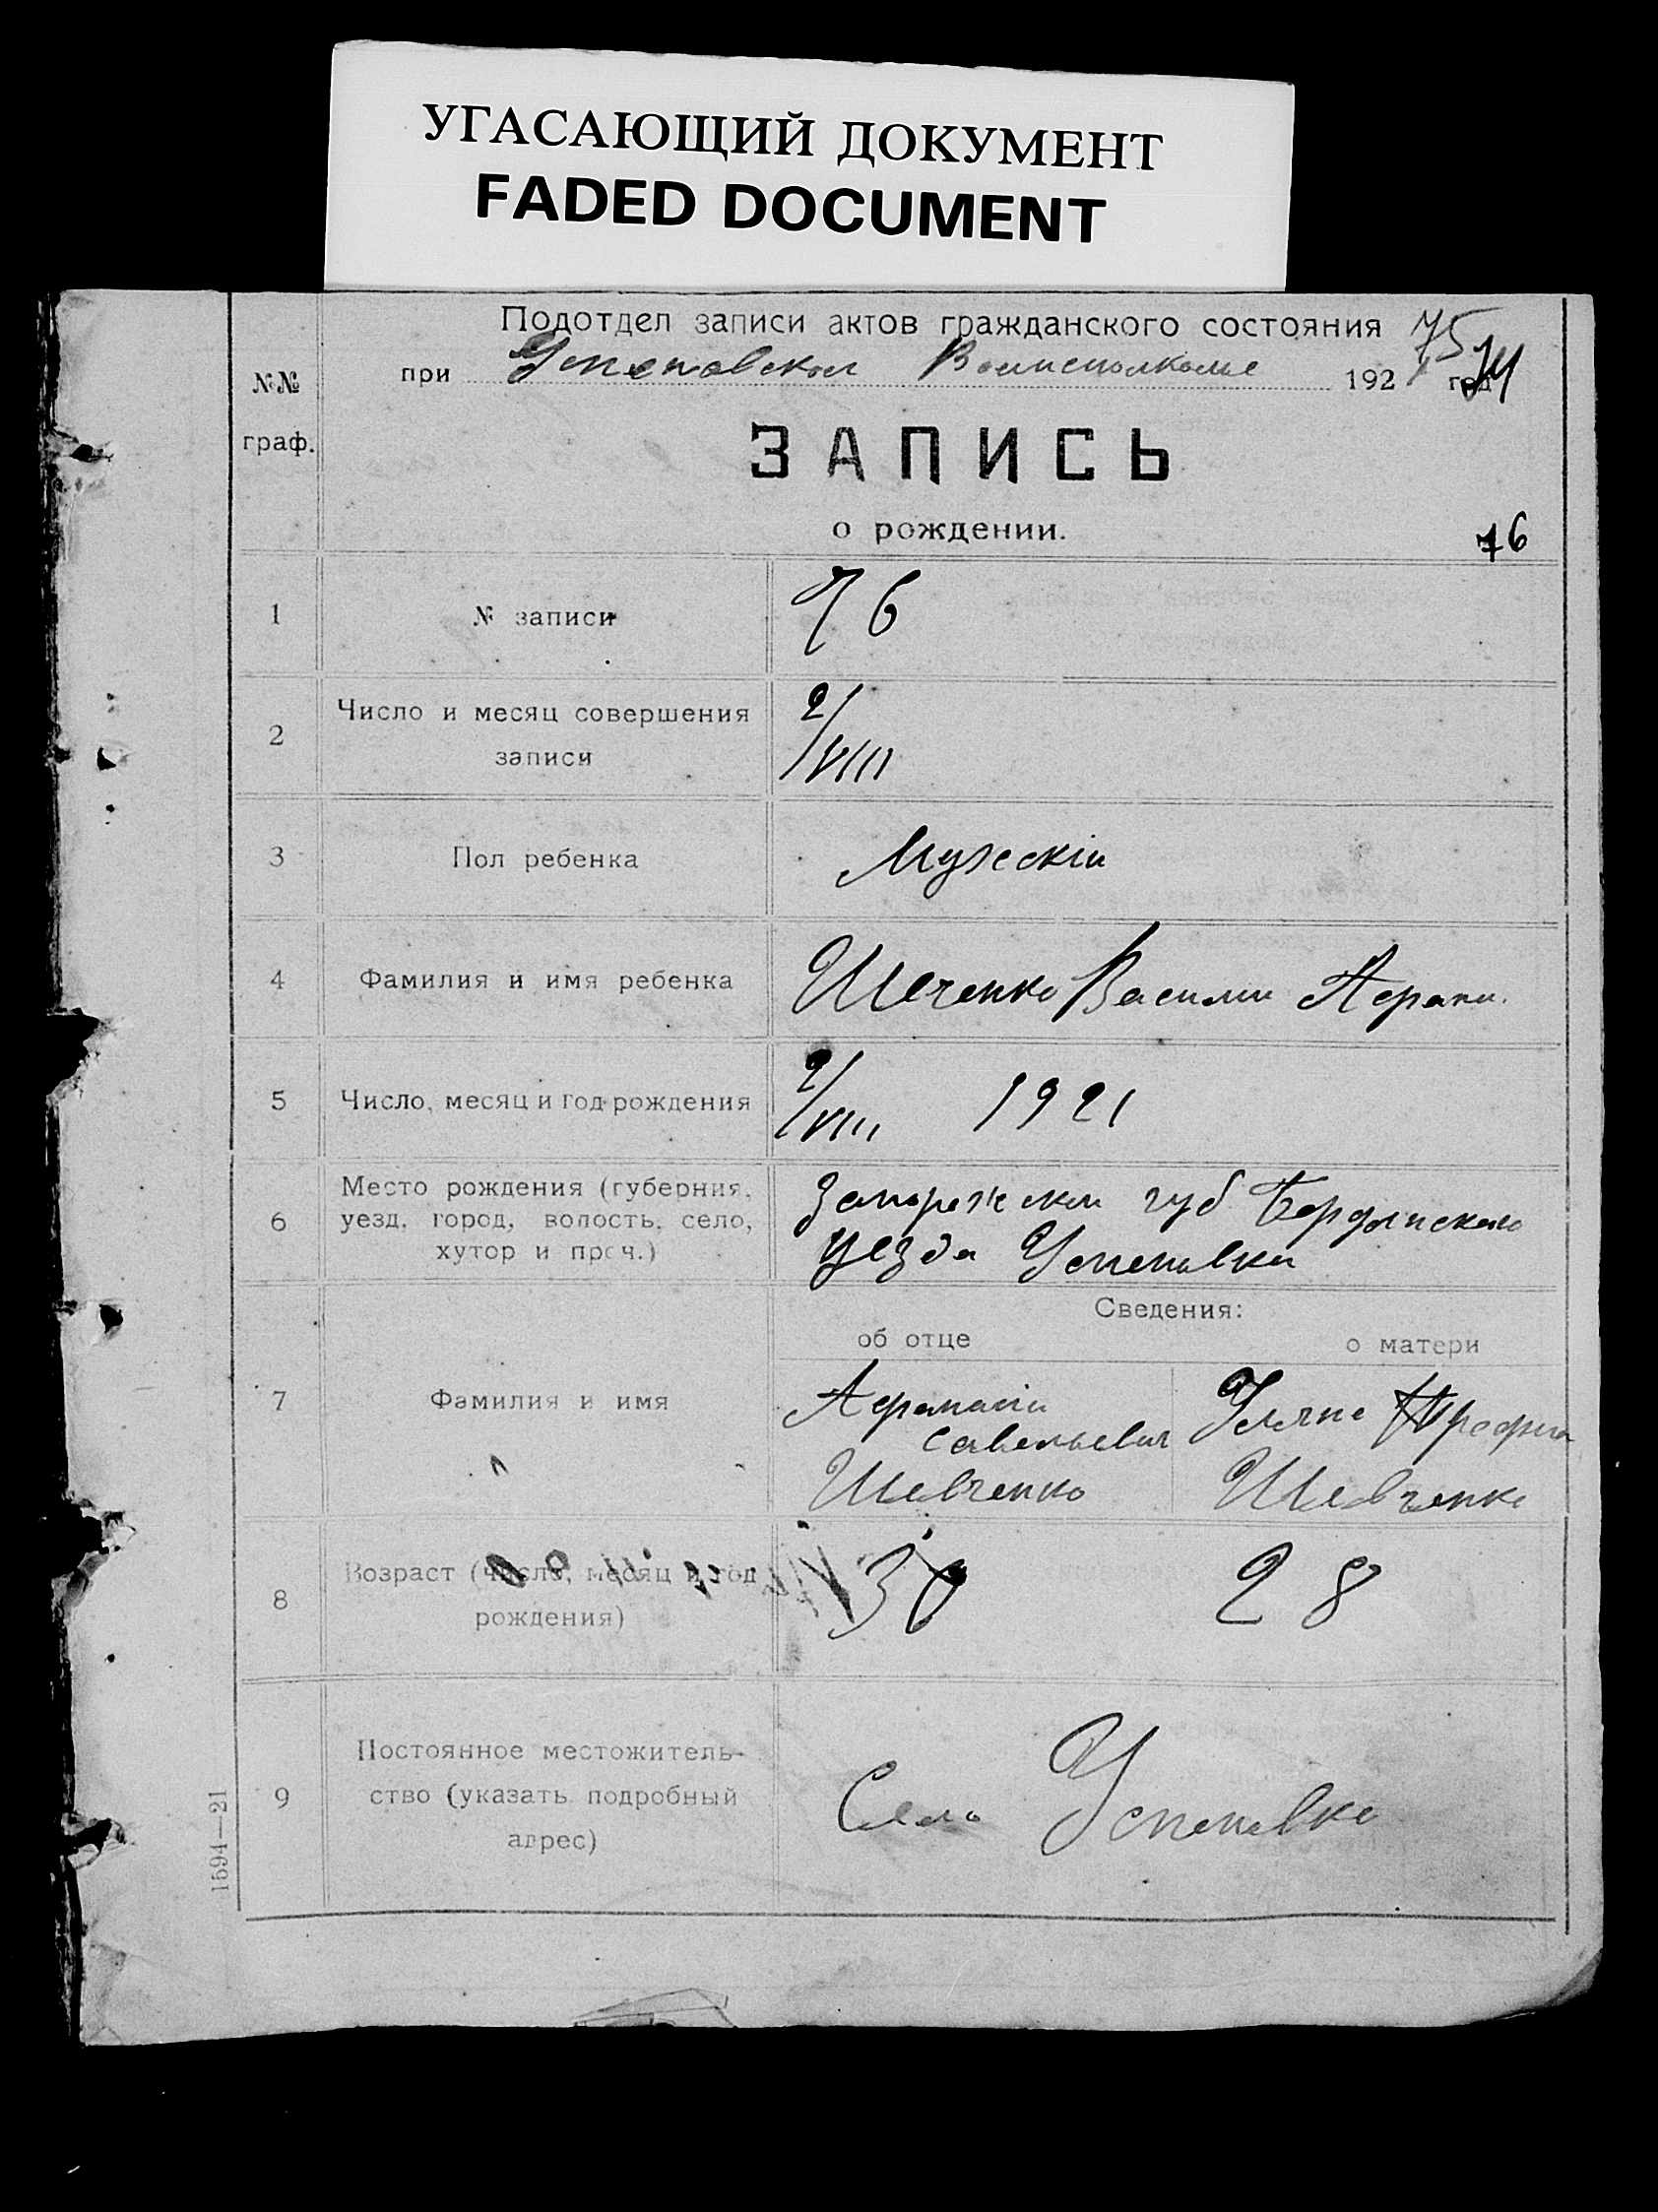 УГАСАЮЩИЙ ДОКУМЕНТ
FADED DOCUMENT
Подотдел записи актов гражданского состояния 75
при Успеновском Волисполкоме 1921 год
№№
граф.
ЗАПИСЬ
о рождении.
76
1 № записи 76
2 Число и месяц совершения
записи
2/VIII
3 Пол ребенка Мужескій
4 Фамилия и имя ребенка Шеченко Василий Афана.
5 Число, месяц и год рождения 2/VIII 1921
6 Место рождения (губерния,
уезд, город, волость, село,
хутор и проч.)
губ Бердянскаго
уезда Успеновка
Сведения:
об отце о матери
7 Фамилия и имя
Афанасій
Савельевич
Шевченко
Шевченко
8 Возраст (число, месяц и год
рождения)
30 28
9 Постоянное местожитель-
ство (указать подробный
адрес)
Село Успеновка
1594—21